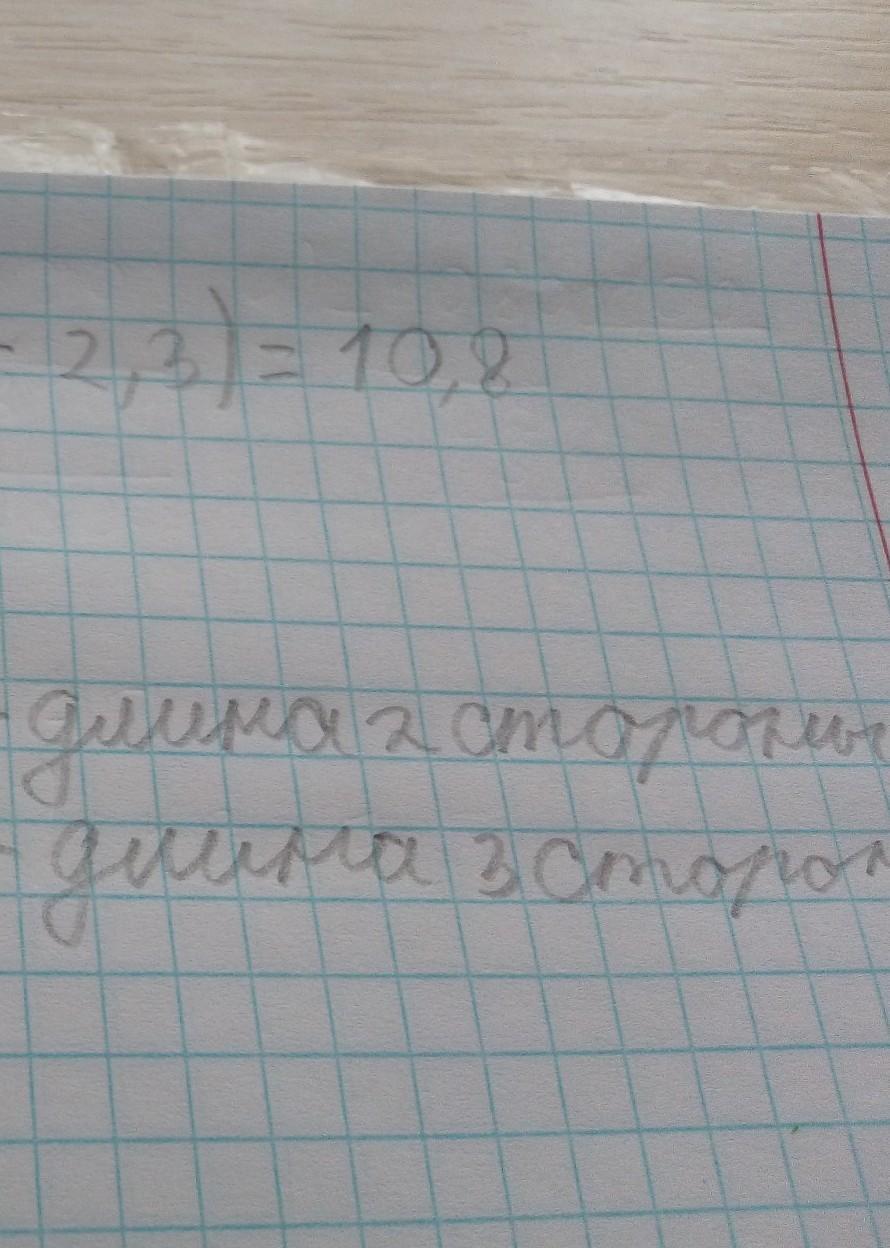 - 2,3) = 10,8
- длина 2 стороны
- длина 3 сторон